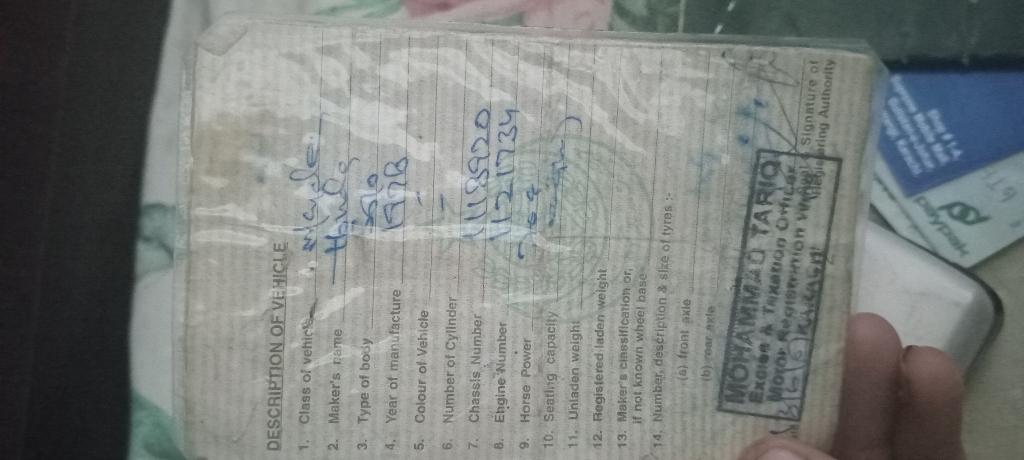 DESCRIPTION OF VEHICLE
1. Class of vehicle M/cycle
2. Maker's name Honda
3. Type of body Solo
4. Year of manufacture
5. Colour of Vehicle -
6. Number of Cylinder -
7. Chassis Number 1118920
8. Engine Number 1121734
9. Horse Power
10. Seating capacity
11. Unladen weight
12. Registered laden weight
13. Maker's classification or,
if not known wheel base
14. Number, description & size of tyres :-
(a) front axle
(b) rear axle
MOHAMMAD TARIQ
Excise & Taxation Officer
Motor Registration Wing
KARACHI
Signature of
Registering Authority